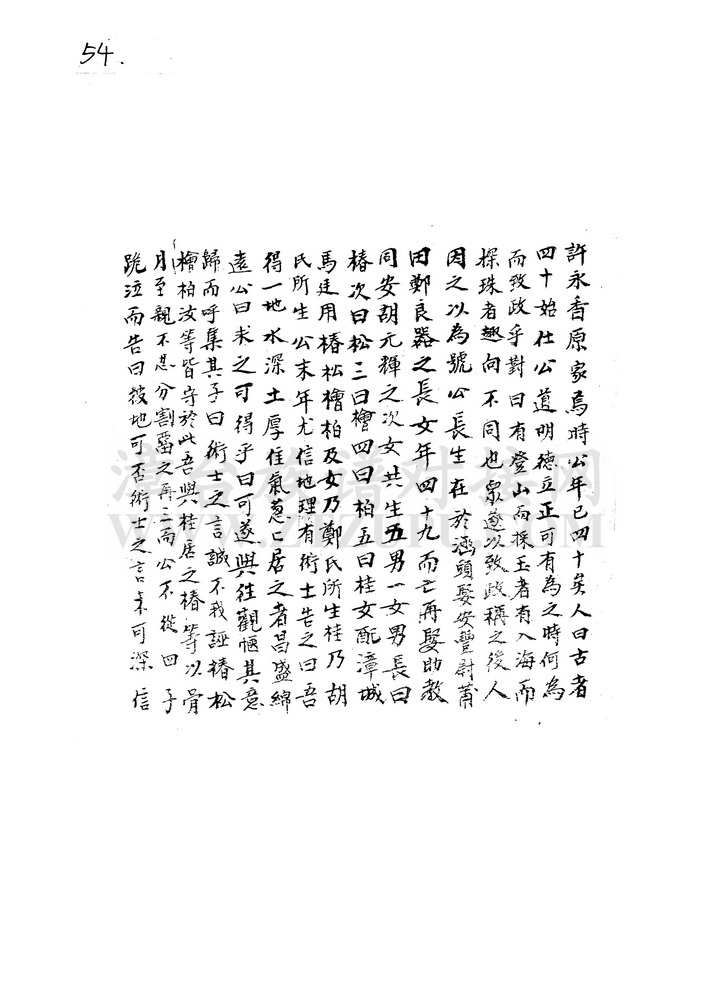 54.
許永香原家焉時公年已四十矣人曰古者
四十始仕公道明德立正可有為之時何為
而致政乎對曰有登山而採玉者有入海而
探珠者趣向不同也眾遂以致政稱之後人
因之以為號公長生在於涵頭娶安豐尉莆
田鄭良器之長女年四十九而亡再娶助教
同安胡元輝之次女共生五男一女男長曰
椿次曰松三曰檜四曰柏五曰桂女配漳城
馬廷用椿松檜柏及女乃鄭氏所生桂乃胡
氏所生公末年尤信地理有術士告之曰吾
得一地水深土厚佳氣蔥〻居之者昌盛綿
遠公曰求之可得乎曰可遂與往觀愜其意
歸而呼集其子曰術士之言誠不我誣椿松
檜柏汝等皆守於此吾與桂居之椿等以骨
月至親不忍分割留之再三而公不從四子
跪泣而告曰彼地可否術士之言未可深信
漳台族譜對接網
WWW.ZTZUPU.COM